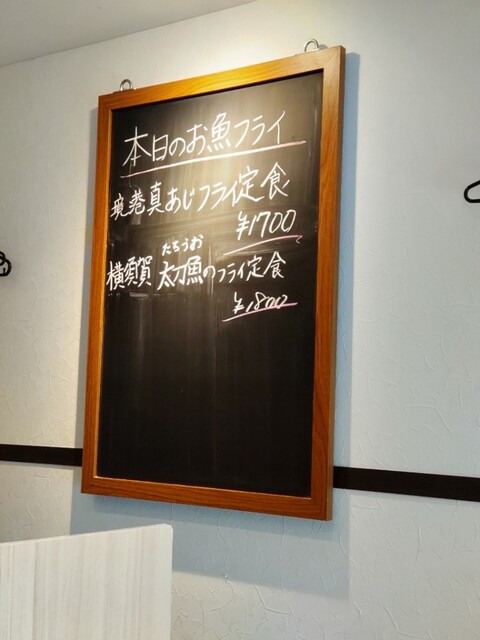 本日のお魚フライ
真あじフライ定食
¥1700
たちうお
横須賀 太刀魚のフライ定食
¥1800